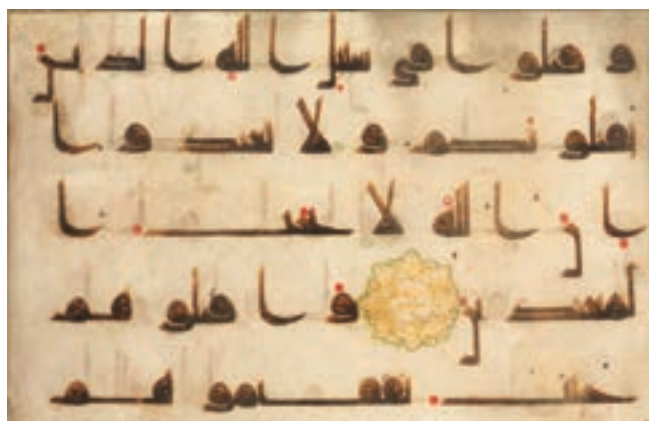 وقتلوا في سبيل الله الذين
يقتلونكم ولا تعتدوا
ان الله لا يحب ا
لمعتدين واقتلوهم
حيث ثقفتموهم